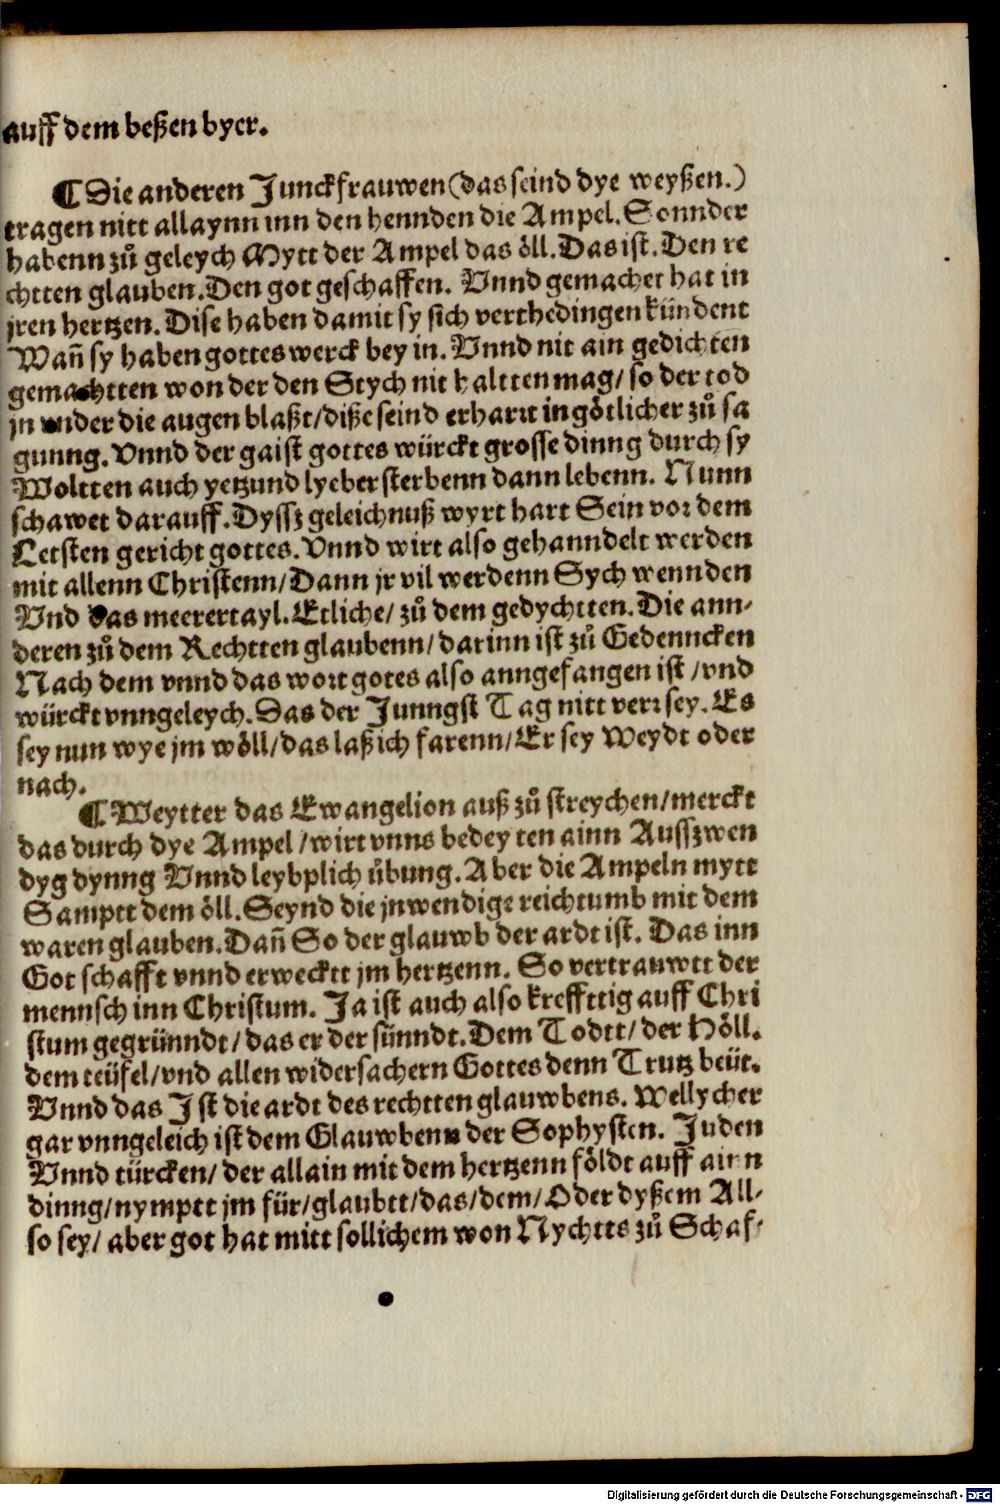 auff dem beßen byer.
¶ Die anderen Junckfrauwen (das seind dye weyßen.)
tragen nitt allaynn inn den hennden die Ampel. Sonnder
habenn zů geleych Mytt der Ampel das öll. Das ist. Den re
chtten glauben. Den got geschaffen. Vnnd gemachet hat in
jren hertzen. Dise haben damit sy sich verthedingen kündent
Wañ sy haben gottes werck bey in. Vnnd nit ain gedichten
gemachtten won der den Stych nit haltten mag / so der tod
jn vnder die augen blaßt / diße seind erharrt in götlicher zů sa
gunng. Vnnd der gaist gottes würckt grosse dinng durch sy
Woltten auch yetzund lyeber sterbenn dann lebenn. Nunn
schawet darauff. Dyssz geleichnuß wyrt hart Sein vor dem
Letsten gericht gottes. Vnnd wirt also gehanndelt werden
mit allenn Christenn / Dann jr vil werdenn Sych wennden
Vnd das meerertayl. Etliche / zů dem gedychtten. Die ann-
deren zů dem Rechtten glaubenn / darinn ist zů Gedenncken
Nach dem vnnd das wort gotes also anngefangen ist / vnd
würckt vnngeleych. Das der Junngst Tag nitt verr sey. Es
sey nun wye jm wöll / das laß ich farenn / Er sey Weydt oder
nach.
¶ Weytter das Ewangelion auß zů streychen / merckt
das durch dye Ampel / wirt vnns bedeyten ainn Aussz wen
dyg dynng Vnnd leybplich übung. Aber die Ampeln mytt
Samptt dem öll. Seynd die jnwendige reichtumb mit dem
waren glauben. Dañ So der glauwb der ardt ist. Das inn
Got schafft vnnd erwecktt jm hertzenn. So vertrauwtt der
mennsch inn Christum. Ja ist auch also kreffttig auff Chri
stum gegrünndt / das er der sünndt. Dem Todtt / der Höll.
dem teüfel / vnd allen widersachern Gottes denn Trutz beüt.
Vnnd das Ist die ardt des rechtten glauwbens. Wellycher
gar vnngeleich ist dem Glauwbenn der Sophysten. Juden
Vnnd türcken / der allain mit dem hertzenn földt auff ainn
dinng / nymptt jm für / glaubtt / das / dem / Oder dyßem All-
so sey / aber got hat mitt sollichem won Nychtts zů Schaf-
Digitalisierung gefördert durch die Deutsche Forschungsgemeinschaft - DFG